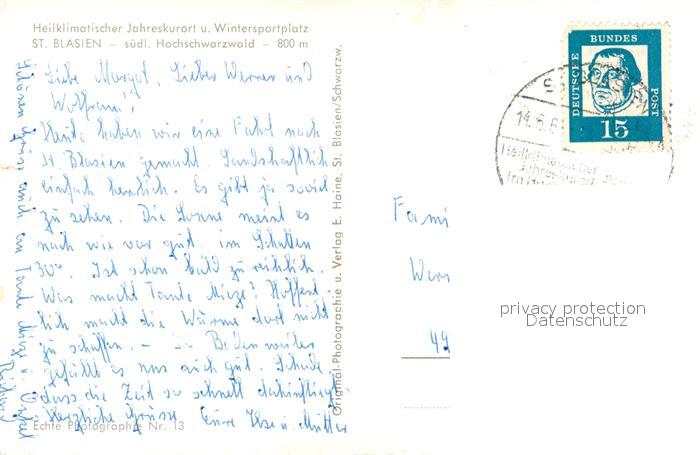 Heilklimatischer Jahreskurort u. Wintersportplatz
ST. BLASIEN – südl. Hochschwarzwald – 800 m
Liebe Margot, Lieber Werner und
Wolfram!
Heute haben wir eine Fahrt nach
St. Blasien gemacht. Landschaftlich
einfach herrlich. Es gibt ja soviel
zu sehen. Die Sonne meint es
nach wie vor gut. im Schatten
30°. Ist schon bald zu reichlich.
Was macht Tante Mieze? Hoffent-
lich macht die Wärme dort nicht
zu schaffen. – In Badenweiler
gefällt es uns auch gut. Schade
dass die Zeit so schnell dahinfliegt.
Herzliche Grüsse Eure Ilse u. Mutter
Schönen Gruss auch an Tante Mieze u. Onkel
Echte Photographie Nr. 13
Original-Photographie u. Verlag E. Haine, St. Blasien/Schwarzw.
DEUTSCHE BUNDES POST
15
14.6.6
Heilklimatischer
Jahreskurort
Fami
Wer
44
privacy protection
Datenschutz